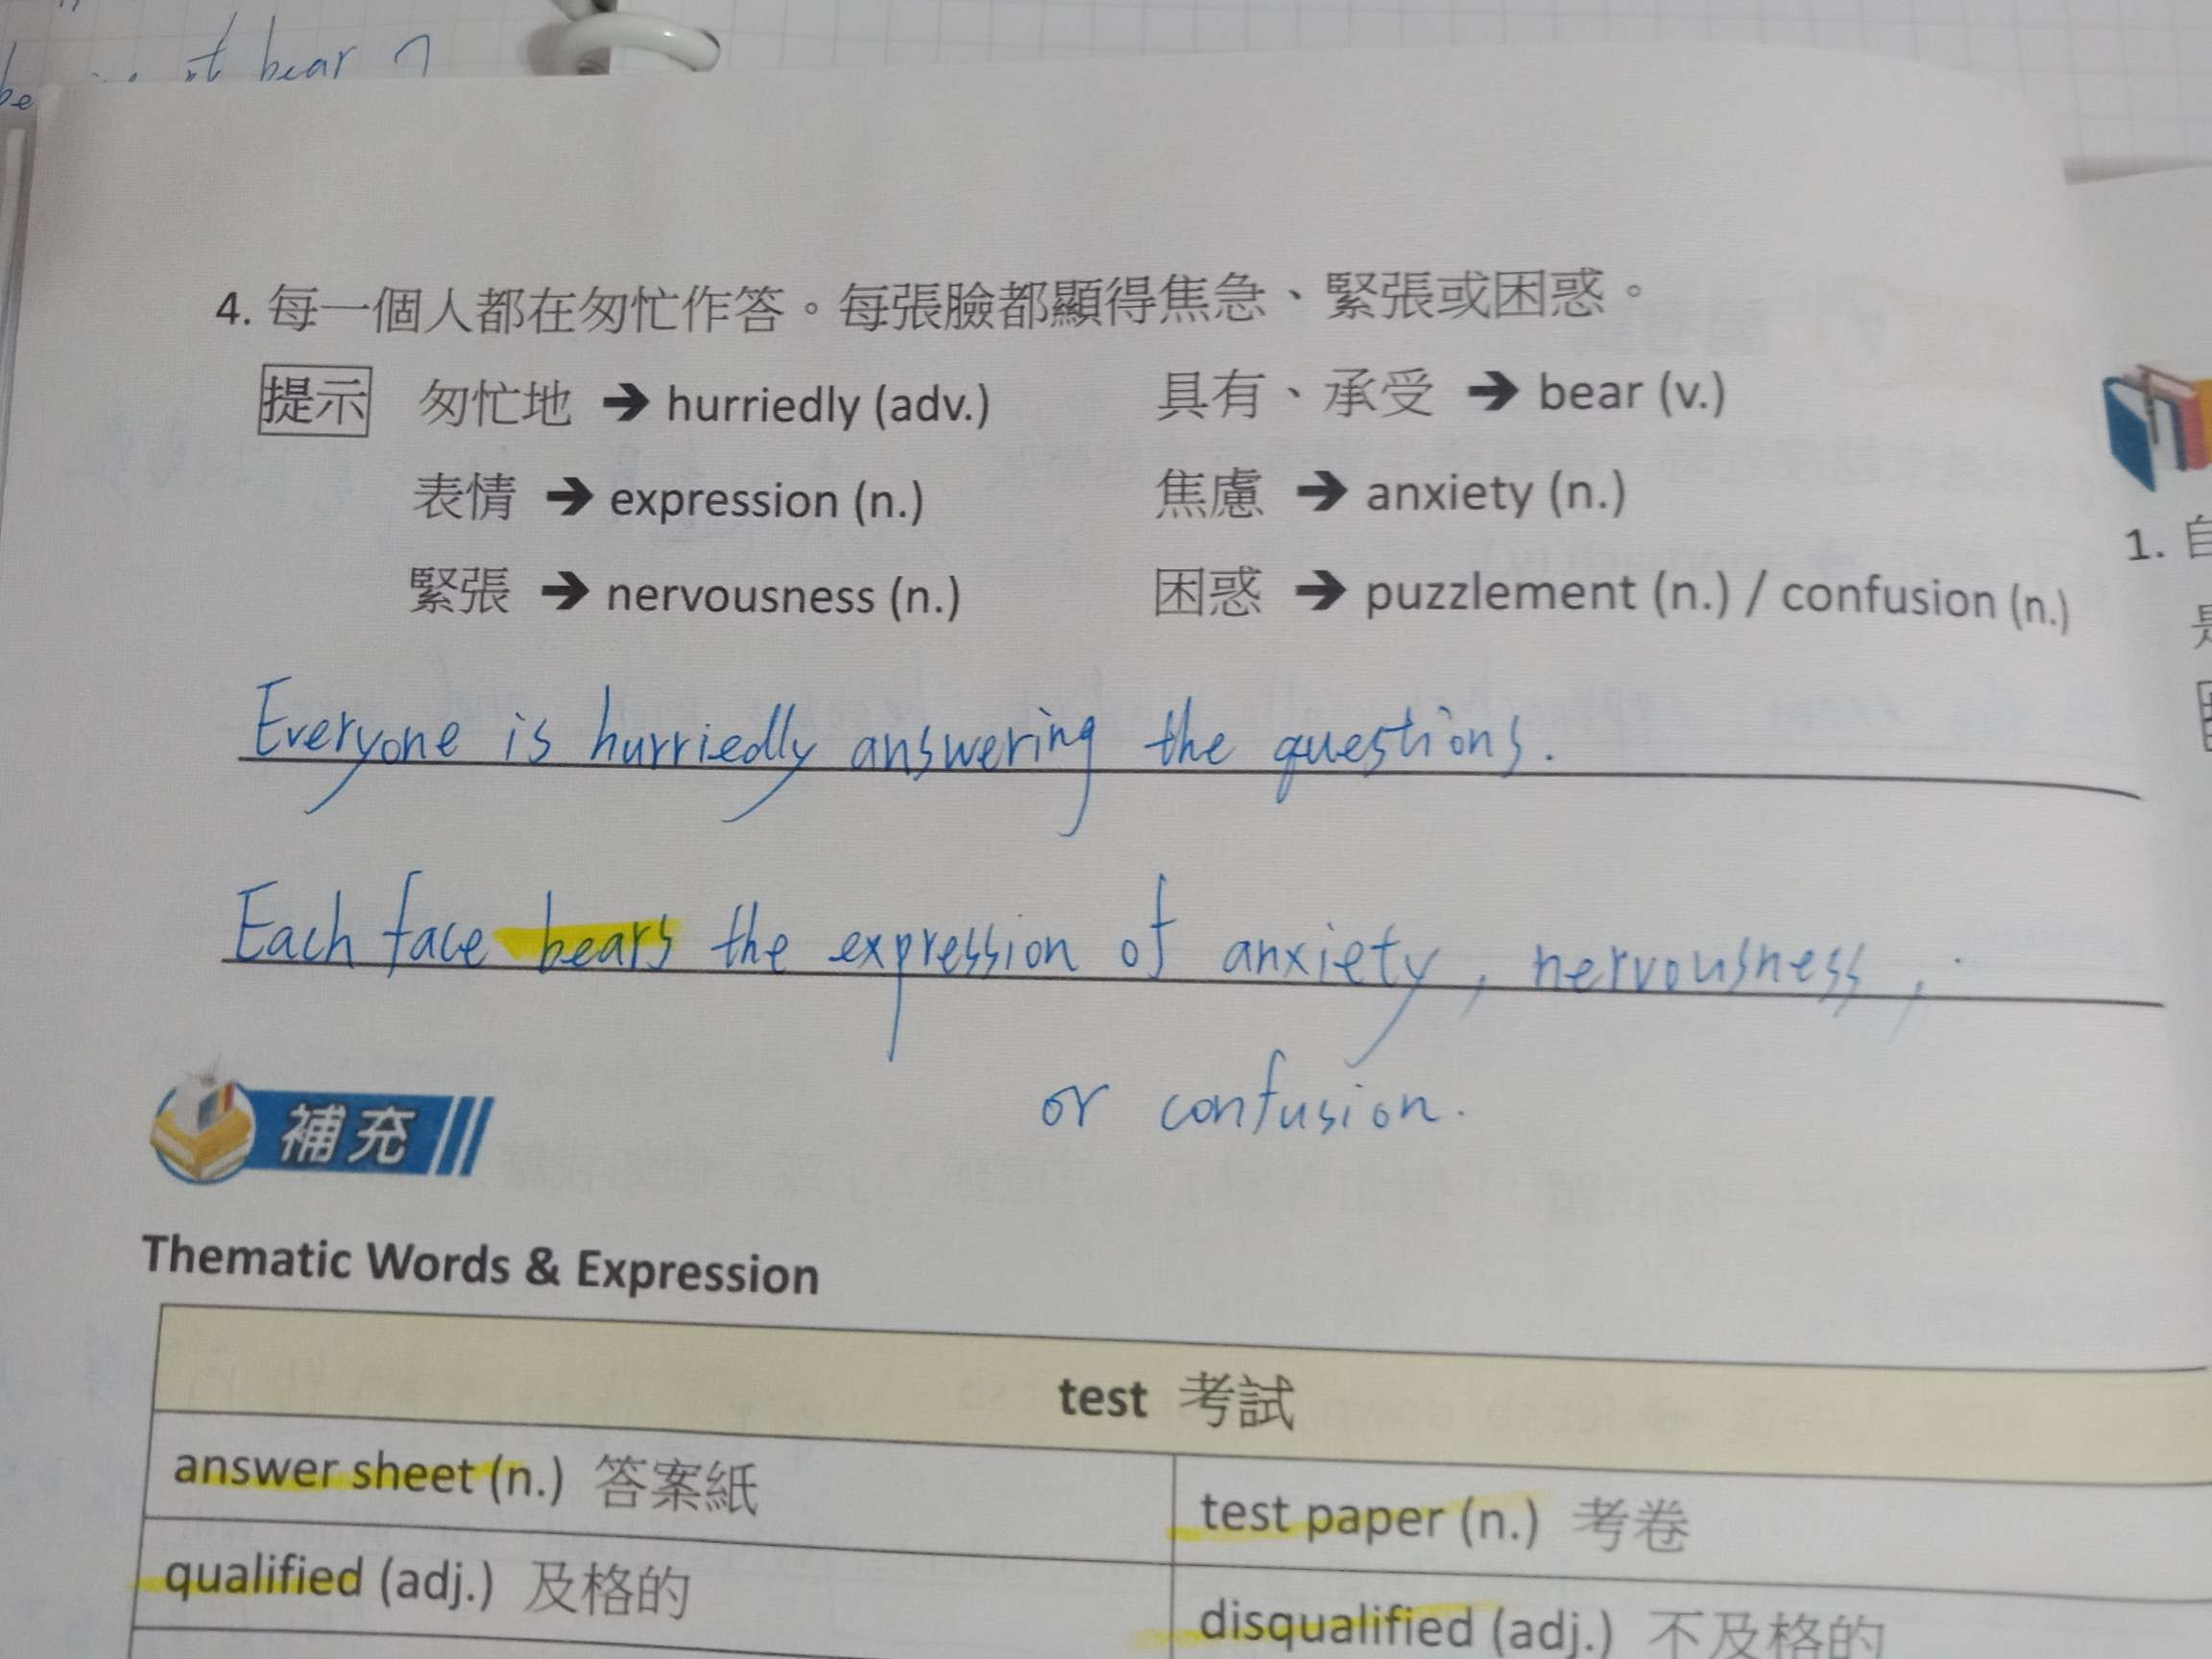 bear
be
4. 每一個人都在匆忙作答。每張臉都顯得焦急、緊張或困惑。
提示 匆忙地 ➔ hurriedly (adv.) 具有、承受 ➔ bear (v.)
表情 ➔ expression (n.) 焦慮 ➔ anxiety (n.)
緊張 ➔ nervousness (n.) 困惑 ➔ puzzlement (n.) / confusion (n.)
Everyone is hurriedly answering the questions.
Each face bears the expression of anxiety, nervousness,
or confusion.
補充
Thematic Words & Expression
test 考試
answer sheet (n.) 答案紙 test paper (n.) 考卷
qualified (adj.) 及格的 disqualified (adj.) 不及格的
1. 自